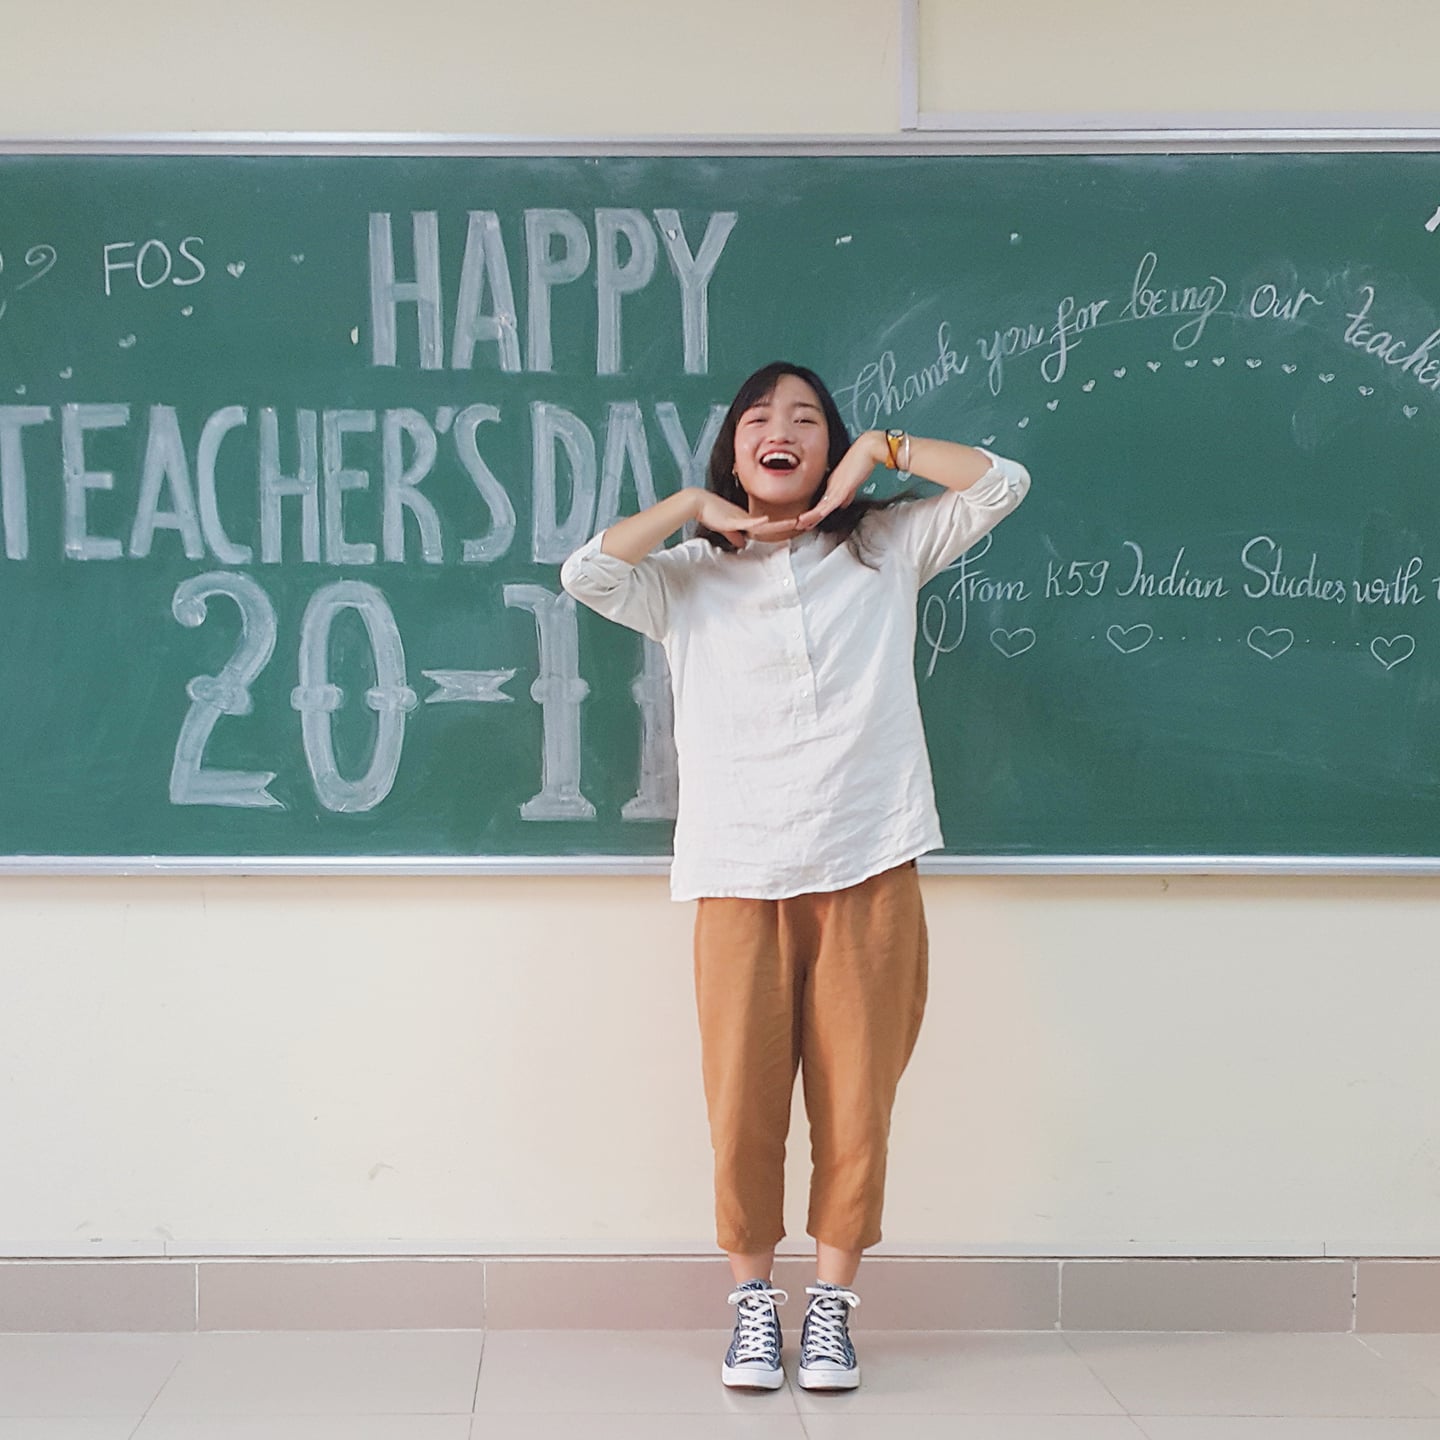 FOS
HAPPY
TEACHER'S DAY
20-11
Thank you for being our teacher
From K59 Indian Studies with